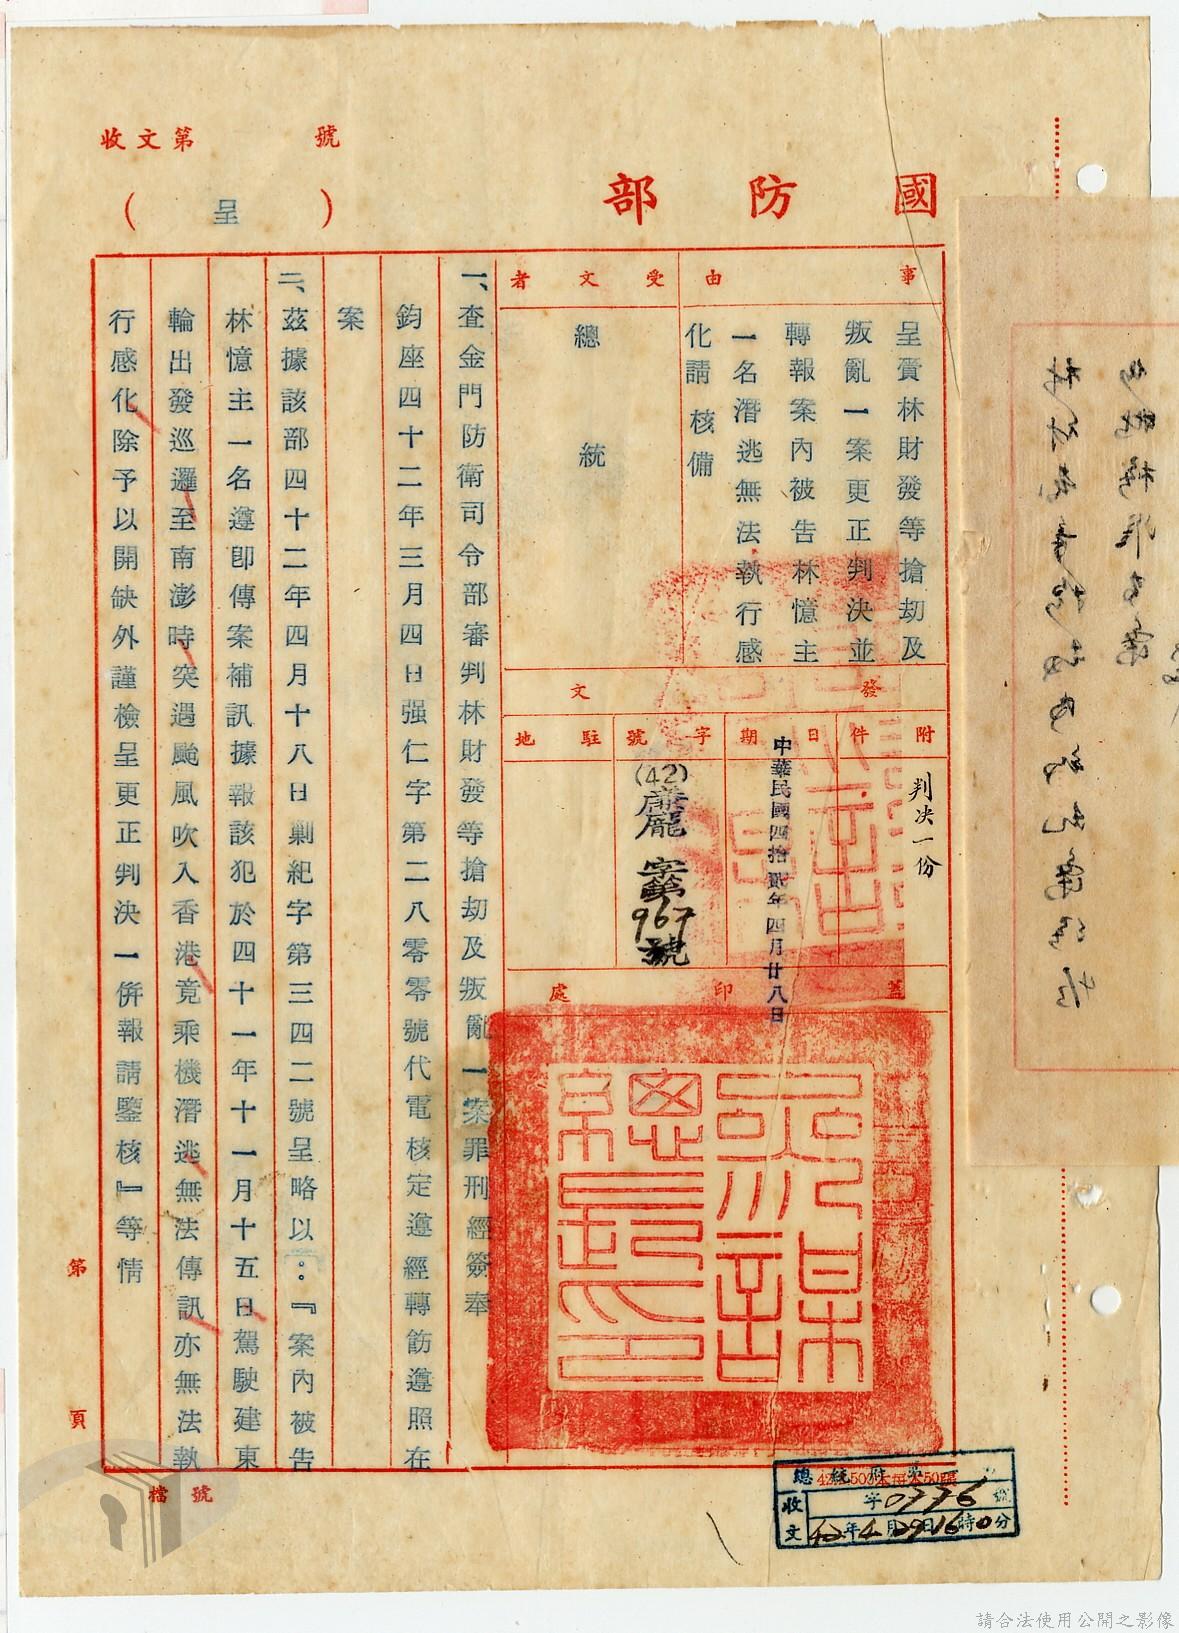 收文第 號
國防部
(呈)
事由
呈賷林財發等搶劫及
叛亂一案更正判決並
轉報案內被告林憶主
一名潛逃無法執行感
化請核備
受文者
總統
發文
附件
判決一份
日期
中華民國四拾貳年四月廿八日
字號
(42)廉龐字第967號
駐地
蓋印處
參謀總長印
一、查金門防衛司令部審判林財發等搶劫及叛亂一案罪刑經簽奉
鈞座四十二年三月四日强仁字第二八零零號代電核定遵經轉飭遵照在
案
二、茲據該部四十二年四月十八日剿紀字第三四二號呈略以：『案內被告
林憶主一名遵卽傳案補訊據報該犯於四十一年十一月十五日駕駛建東
輪出發巡邏至南澎時突遇颱風吹入香港竟乘機潛逃無法傳訊亦無法執
行感化除予以開缺外謹檢呈更正判決一併報請鑒核』等情
第 頁
檔 號
總統府
收文
字0776號
42年4月29日16時0分
請合法使用公開之影像